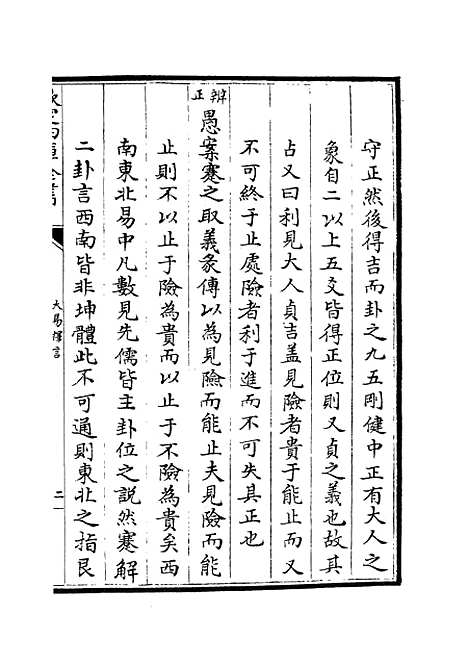 守正然後得吉而卦之九五剛健中正有大人之
象自二以上五爻皆得正位則又貞之義也故其
占又曰利見大人貞吉盖見險者貴于能止而又
不可終于止處險者利于進而不可失其正也
辨正
愚案蹇之取義彖傳以為見險而能止夫見險而能
止則不以止于險為貴而以止于不險為貴矣西
南東北易中凡數見先儒皆主卦位之説然蹇解
二卦言西南皆非坤體此不可通則東北之指艮
欽定四庫全書
大易擇言
二